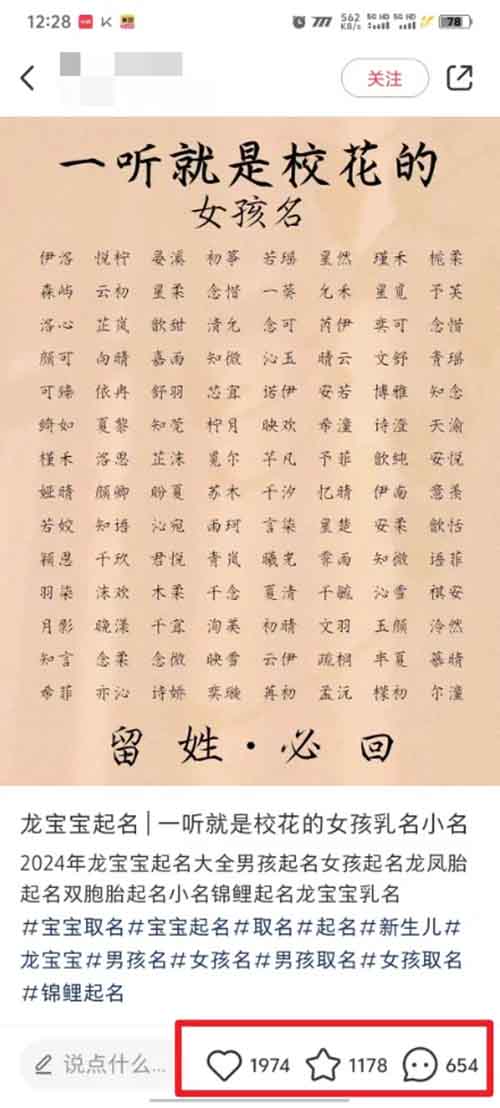 12:28
562 KB/s 5G HD 5G HD 78
关注
一听就是校花的
女孩名
伊洛 悦柠 晏溪 初筝 若瑶 星然 瑾禾 栀柔
森屿 云初 星柔 念惜 一葵 允禾 星觅 予芙
洛心 芷岚 歆甜 清允 念可 芮伊 奕可 念惜
颜可 向晴 嘉雨 知微 沁玉 晴云 文舒 青瑶
可臻 依冉 舒羽 芯宜 诺伊 安若 博雅 知念
绮如 夏黎 知苋 柠月 映欢 希潼 诗滢 天渝
槿禾 洛思 芷沫 觅尔 芊凡 予菲 歆纯 安悦
娅晴 颜卿 盼夏 苏木 千汐 忆晴 伊南 意茶
若姣 知语 沁宛 雨珂 言染 星楚 安柔 歆恬
颖思 千玖 君悦 青岚 曦光 霏雨 知微 语菲
羽染 沫欢 木柔 千念 夏清 千毓 沁雪 祺安
月影 晚漾 千宜 洵英 初晴 文羽 玉颜 泠然
知言 念柔 念微 映雪 云伊 疏桐 半夏 慕晴
希菲 亦沁 诗娇 奕璇 苒初 孟沅 檬初 尔潼
留姓·必回
龙宝宝起名|一听就是校花的女孩乳名小名
2024年龙宝宝起名大全男孩起名女孩起名龙凤胎
起名双胞胎起名小名锦鲤起名龙宝宝乳名
#宝宝取名#宝宝起名#取名#起名#新生儿#
龙宝宝#男孩名#女孩名#男孩取名#女孩取名
#锦鲤起名
说点什么... 1974 1178 654